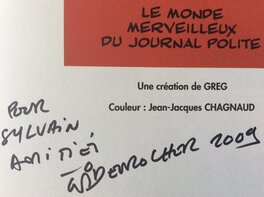 LE MONDE
MERVEILLEUX
DU JOURNAL POLITE
Une création de GREG
Couleur : Jean-Jacques CHAGNAUD
POUR
SYLVAIN
AMITIÉ
WIDENLOCHER 2009